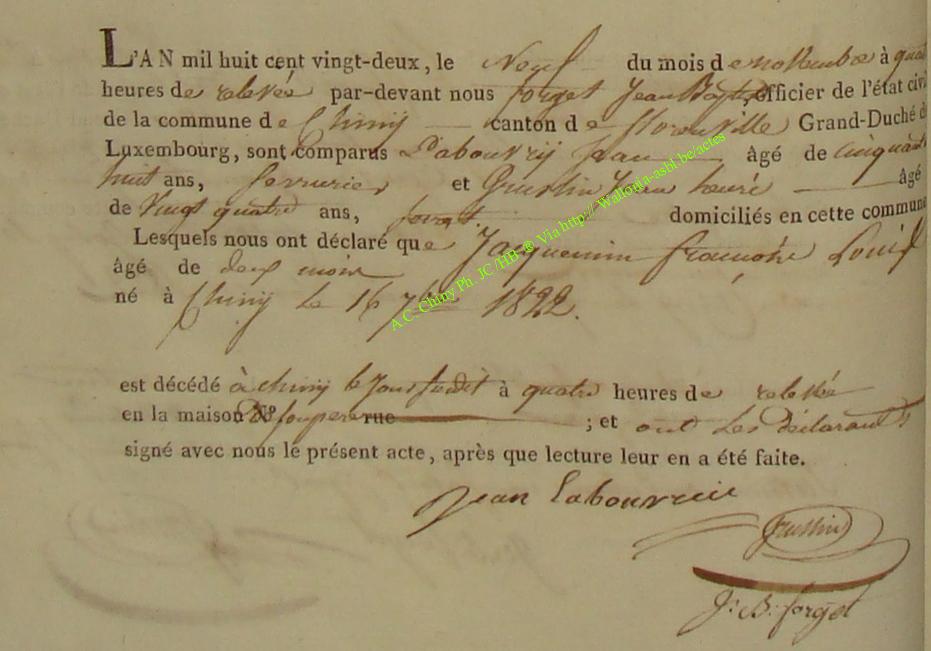 L'AN mil huit cent vingt-deux, le Neuf du mois de novembre à quatre
heures de relevée par-devant nous forget Jean Baptiste officier de l'état civil
de la commune de Chiny canton de florenville Grand-Duché de
Luxembourg, sont comparus Labouvrÿ Jean âgé de cinquante
huit ans, serrurier et Jean henri âgé
de vingt quatre ans, domiciliés en cette commune
Lesquels nous ont déclaré que Jacquemin françois Louis
âgé de deux mois
né à Chiny le 16 7bre 1822.
est décédé à chiny le jour susdit à quatre heures de relevée
en la maison N° de son pere rue ; et ont Les déclarants
signé avec nous le présent acte, après que lecture leur en a été faite.
jean labouverie
J: B: forget
A.C. Chiny Ph. JC /HB ® Via http:// Wallonia-asbl.be/actes